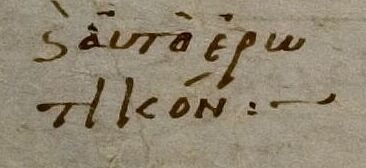 ϛ̀ αὐτὸ ἐρω
τικόν :~